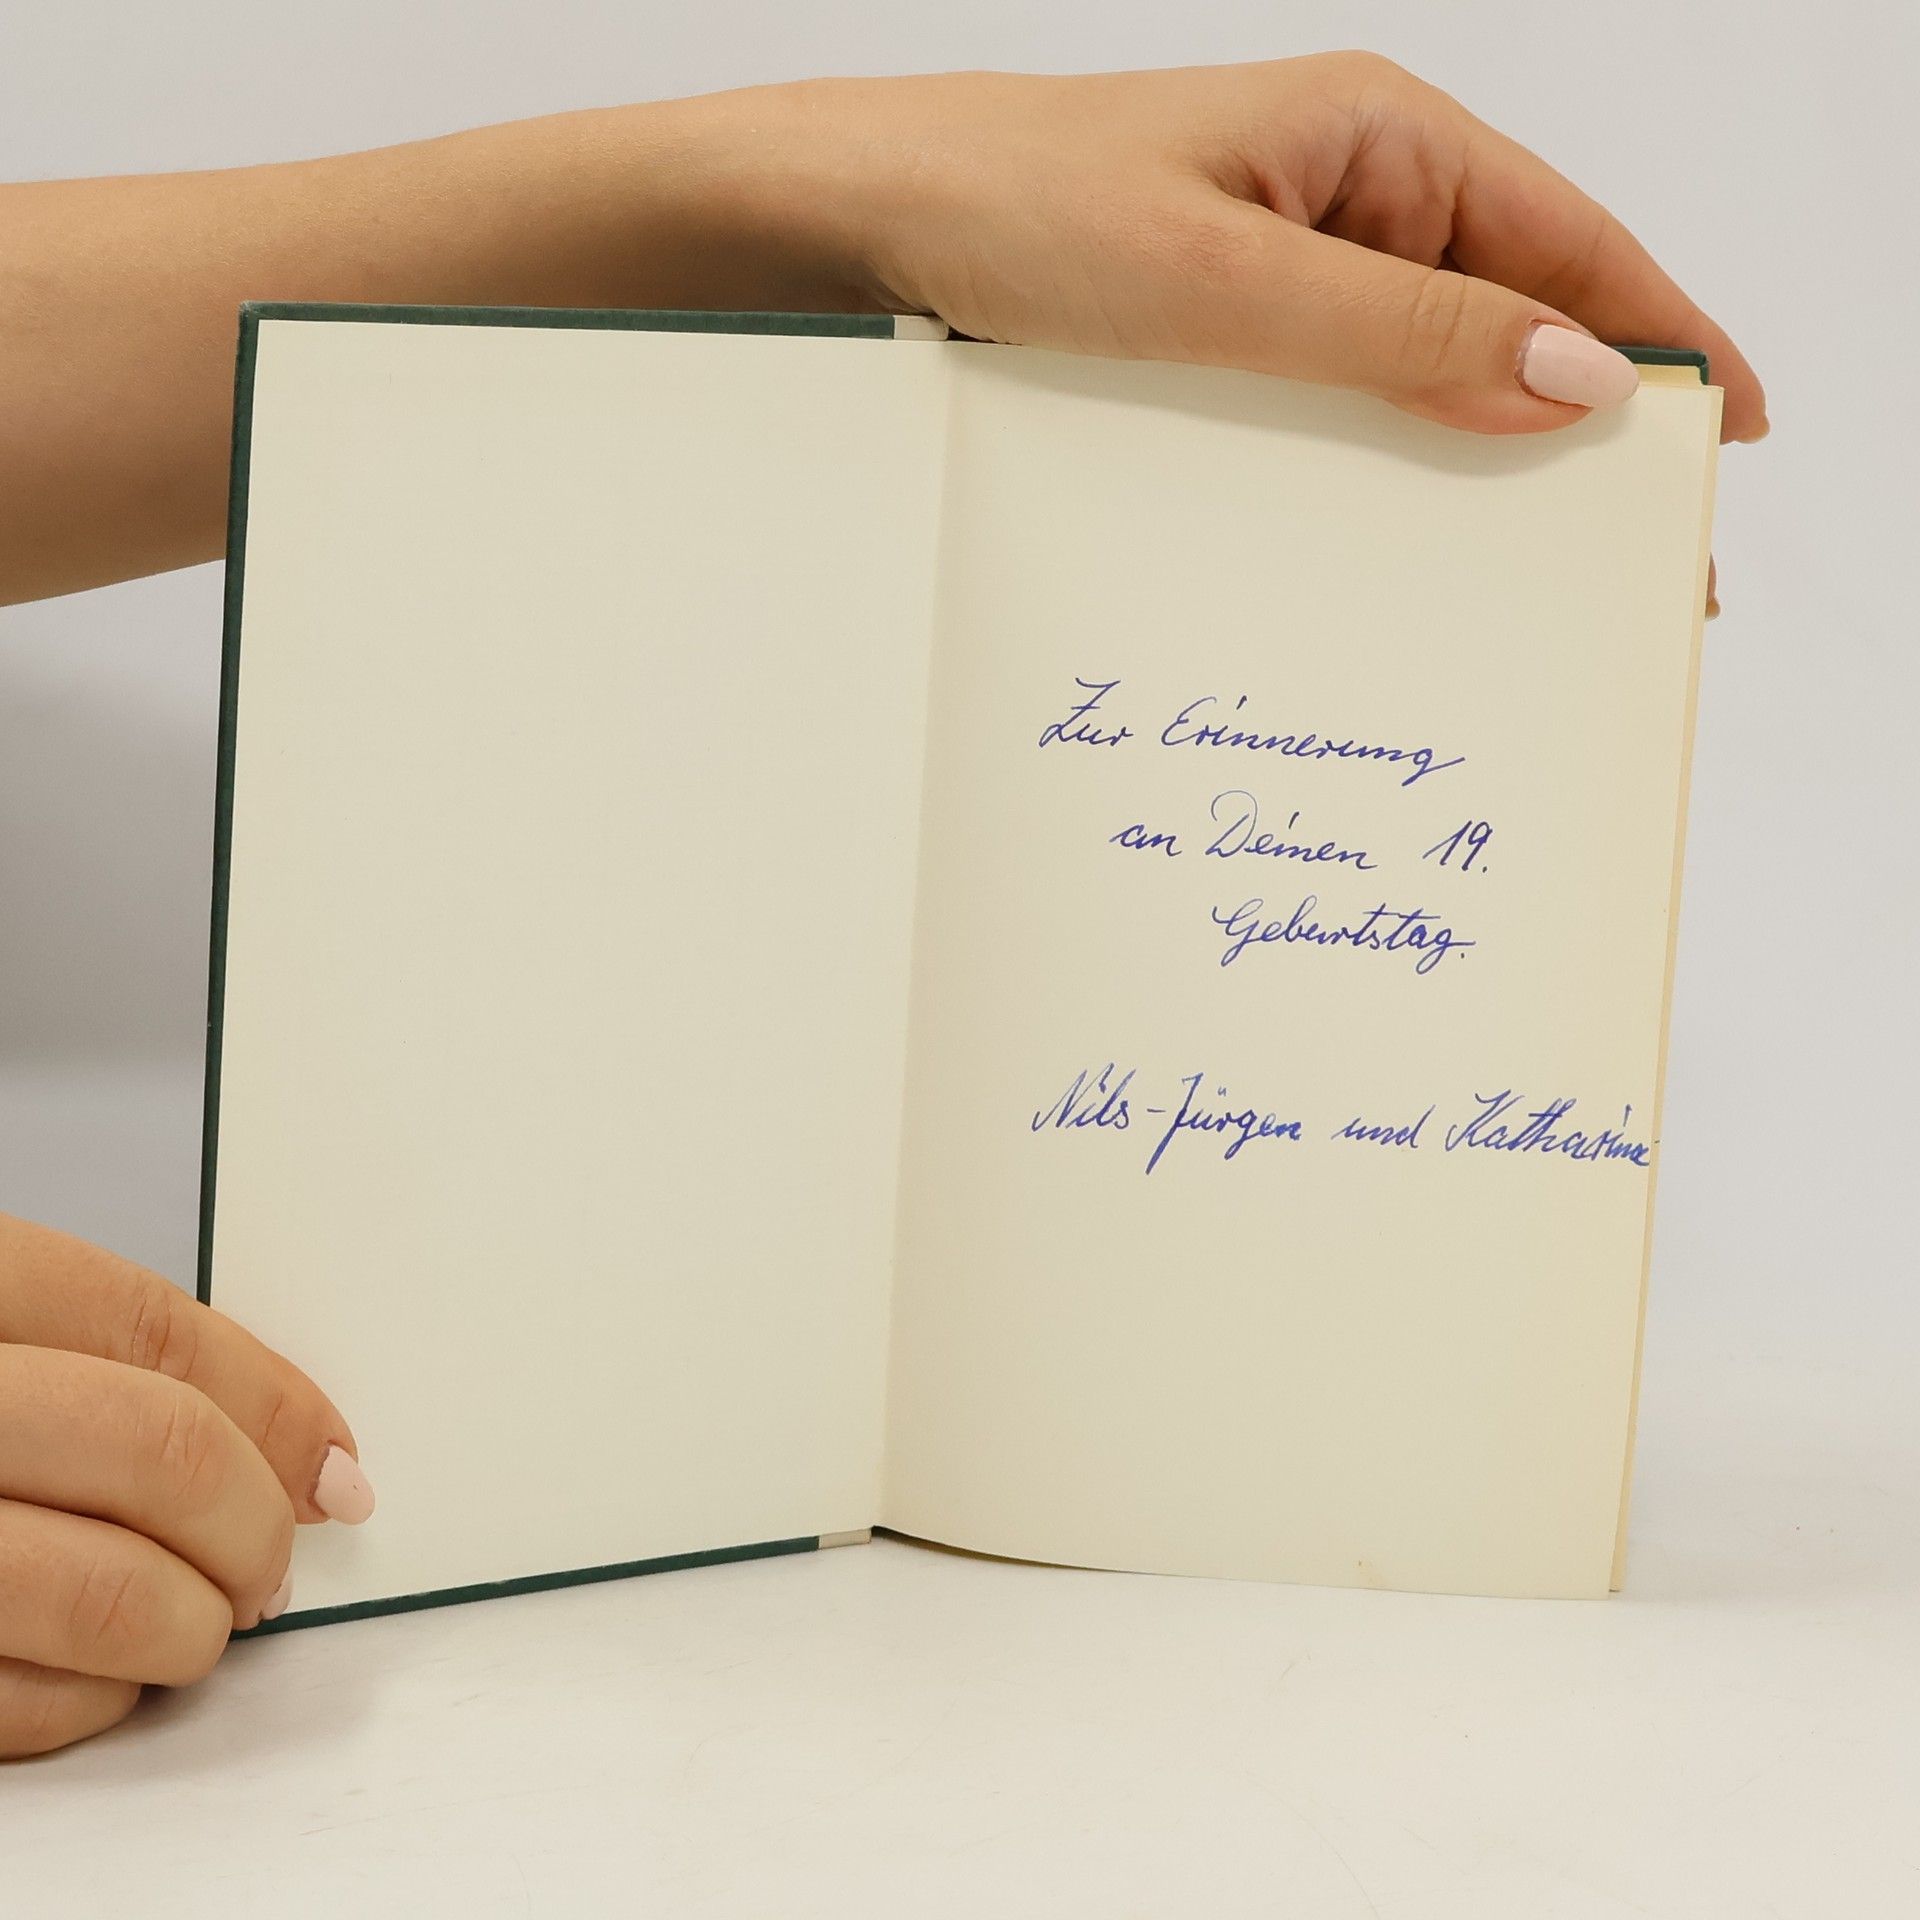 Zur Erinnerung
an Deinen 19.
Geburtstag.
Nils-Jürgen und Katharina